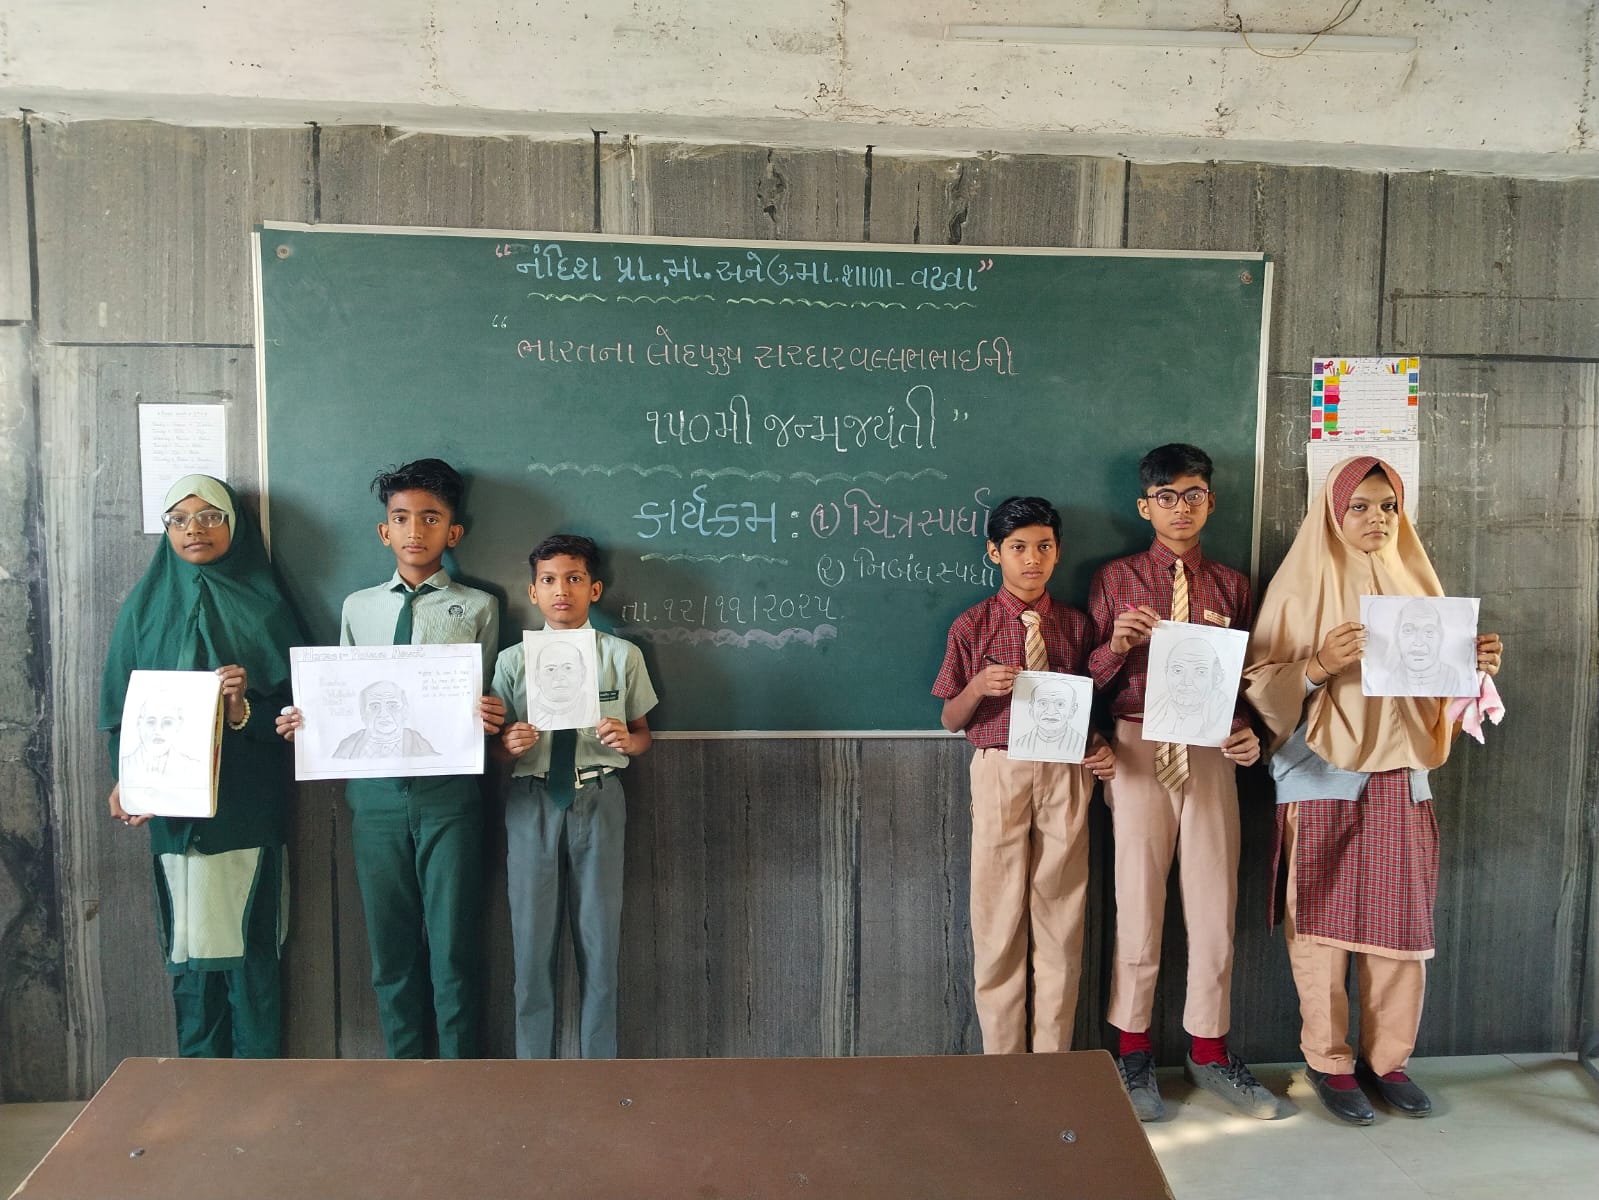 “નંદિશ પ્રા.,મા. અને ઉ.મા. શાળા - વટવા”
“ભારતના લોહપુરુષ સરદાર વલ્લભભાઈની
૧૫૦મી જન્મજયંતી”
કાર્યક્રમ : (૧) ચિત્રસ્પર્ધા
(૨) નિબંધસ્પર્ધા
તા. ૧૨/૧૧/૨૦૨૫.